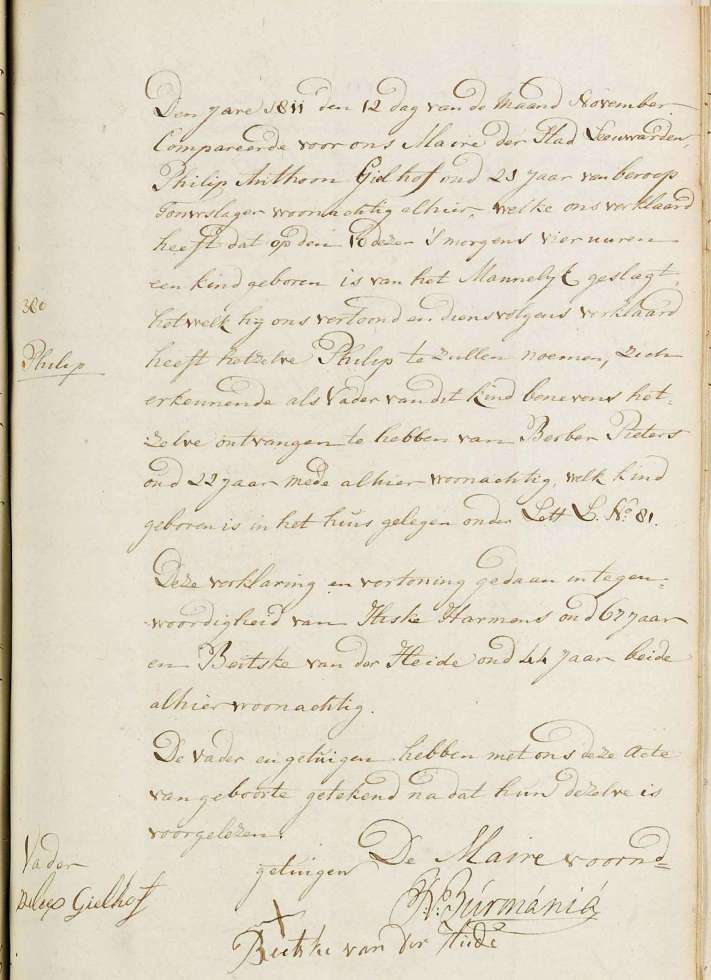 Den jare 1811 den 12 dag van de Maand November
Compareerde voor ons Maire der Stad Leeuwarden,
Philip Anthoon Gielhof oud 25 jaar van beroep
Touwslager woonachtig alhier, welke ons verklaard
heeft dat op den 10 dezer 's morgens vier uuren
een kind geboren is van het Mannelyk geslagt,
380
hetwelk hy ons vertoond en diensvolgens verklaard
Philip
heeft hetzelve Philip te zullen noemen, zich
erkennende als Vader van dit kind benevens het-
zelve ontvangen te hebben van Berber Pieters
oud 22 jaar mede alhier woonachtig, welk kind
geboren is in het huis gelegen onder Lett L. No 81.
Deze verklaring en vertoning gedaan in tegen-
woordigheid van Hiske Harmens oud 67 jaar
en Beitske van der Heide oud 44 jaar beide
alhier woonachtig.
De Vader en getuigen hebben met ons deze Acte
van geboorte getekend na dat hun dezelve is
voorgelezen.
Vader
getuigen
De Maire voornd
Gielhof
Burmániá
X
Beitske van der Heide